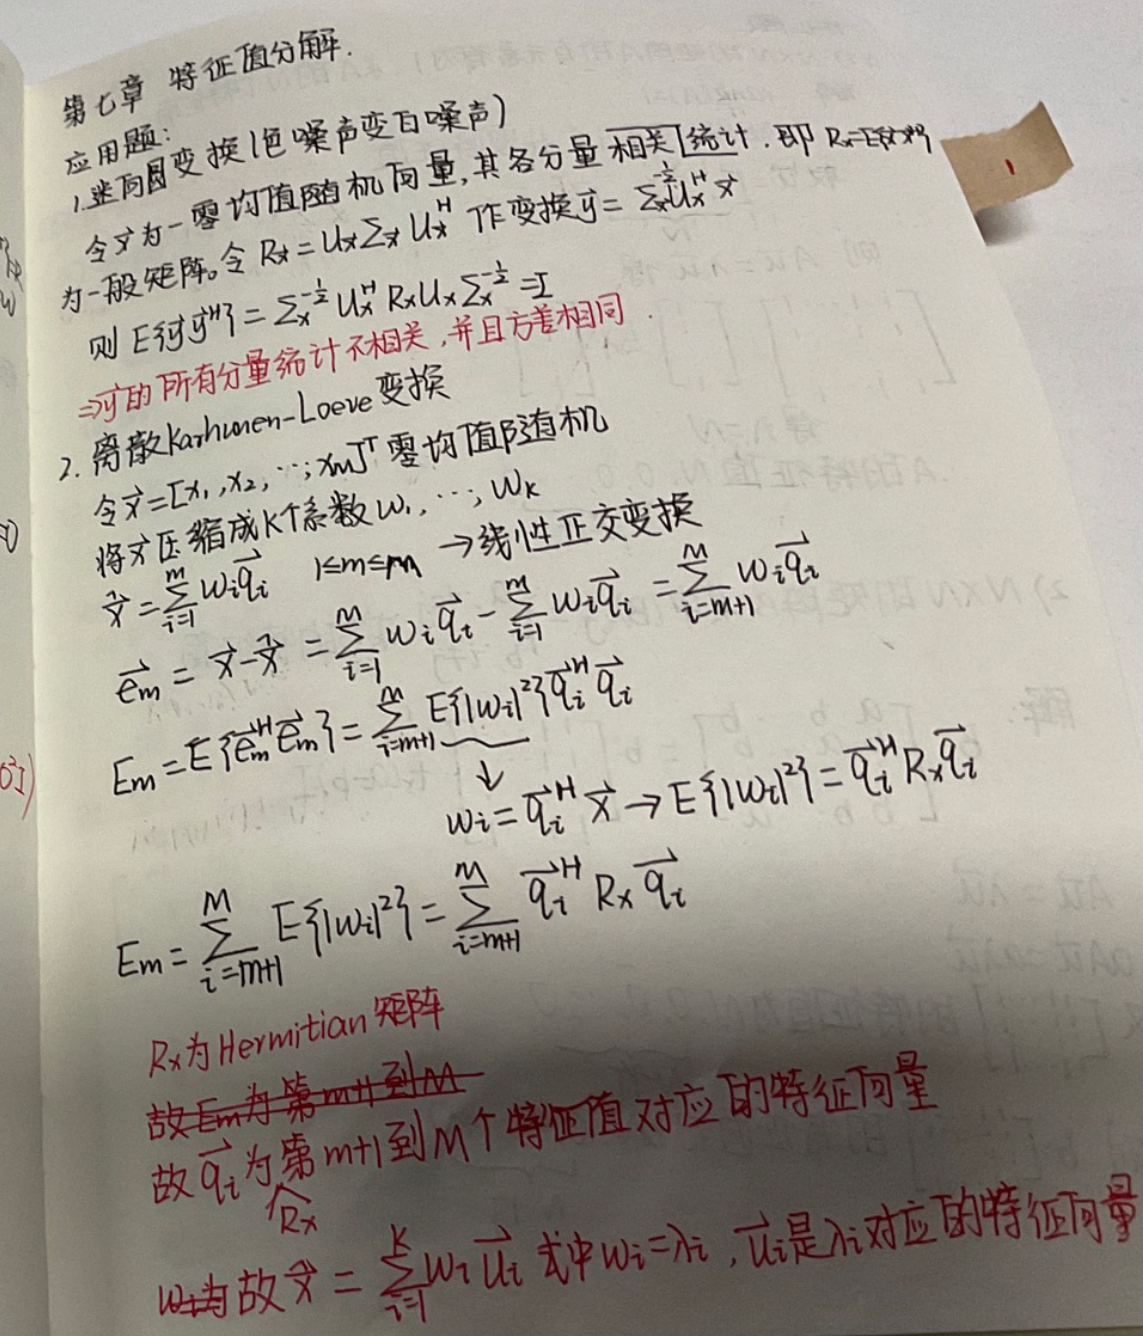 第七章 特征值分解.
应用题:
1.迷向圆变换(色噪声变白噪声)
令x⃗为一零均值随机向量,其各分量统计相关.即Rx=E{x⃗x⃗ᴴ}
为一般矩阵。令Rx=UxΣxUxᴴ 作变换y⃗=Σx^{-1/2}Uxᴴx⃗
则E{y⃗y⃗ᴴ}=Σx^{-1/2}UxᴴRxUxΣx^{-1/2}=I
⇒y⃗的所有分量统计不相关,并且方差相同.
2.离散Karhunen-Loeve变换
令x⃗=[x₁,x₂,…,xM]ᵀ零均值随机
将x⃗压缩成K个系数w₁,…,wK
x̂=∑_{i=1}^{m}wᵢq⃗ᵢ 1≤m≤M →线性正交变换
e⃗m=x⃗-x̂=∑_{i=1}^{M}wᵢq⃗ᵢ-∑_{i=1}^{m}wᵢq⃗ᵢ=∑_{i=m+1}^{M}wᵢq⃗ᵢ
Em=E{e⃗mᴴe⃗m}=∑_{i=m+1}^{M}E{|wᵢ|²}q⃗ᵢᴴq⃗ᵢ
↓
wᵢ=q⃗ᵢᴴx⃗→E{|wᵢ|²}=q⃗ᵢᴴRxq⃗ᵢ
Em=∑_{i=m+1}^{M}E{|wᵢ|²}=∑_{i=m+1}^{M}q⃗ᵢᴴRxq⃗ᵢ
Rx为Hermitian矩阵
故Em为第m+1到M
故q⃗ᵢ为Rx第m+1到M个特征值对应的特征向量
wᵢ为故x̂=∑_{i=1}^{K}wᵢu⃗ᵢ 式中wᵢ=λᵢ,u⃗ᵢ是λᵢ对应的特征向量